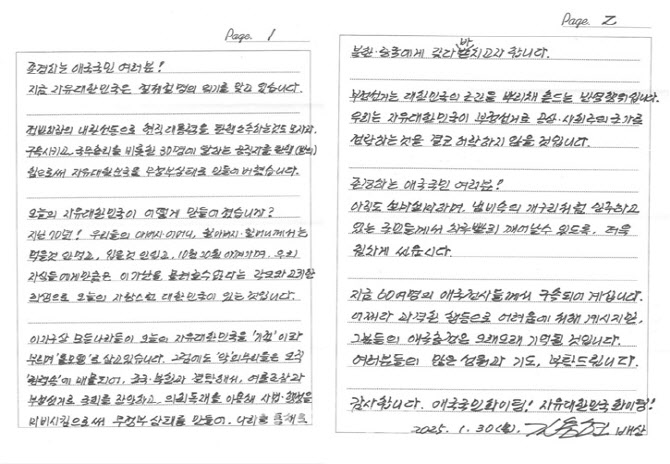 Page. 1
존경하는 애국국민 여러분!
지금 자유대한민국은 절체절명의 위기를 맞고 있습니다.
전범죄자의 내란선동으로 현직 대통령을 탄핵소추하는것도 모자라,
구속시키고 국무총리를 비롯한 30명에 달하는 공직자를 탄핵(발의)
함으로써 자유대한민국을 무정부상태로 만들어 버렸습니다.
오늘의 자유대한민국이 어떻게 만들어 졌습니까?
지난 70년! 우리들의 아버지·어머니, 할아버지·할머니께서는
먹을것 안먹고, 입을것 안입고, 10원 20원 아껴가며, 우리
자식들에게만큼은 이 가난을 물려줄수 없다는 각고와 고귀한
희생으로 오늘의 자랑스런 대한민국이 있는 것입니다.
이지구상 모든나라들이 오늘의 자유대한민국을 '기적'이라
부르며 '롤모델'로 삼고있습니다. 그럼에도 '악'의무리들은 오직
에 매몰되어, 중국·북한과 결탁해서, 여론조작과
부정선거로 국회를 장악하고, 의회독재를 이용해 사법·행정을
마비시킴으로써 무정부 상태를 만들어, 나라를 통째로
Page. 2
북한·중국에게 갖다 바치고자 합니다.
부정선거는 대한민국의 근간을 뿌리채 흔드는 반역행위입니다.
우리는 자유대한민국이 부정선거로 공산·사회주의 국가로
전락하는것은 결코 허락하지 않을 것입니다.
존경하는 애국국민 여러분!
아직도 하며, 냄비속의 개구리처럼 안주하고
있는 국민들께서 하루빨리 깨어날수 있도록, 더욱
힘차게 싸웁시다.
지금 60여명의 애국전사들께서 구속되어 계십니다.
어쩌다 과격한 행동으로 어려움에 처해 계시지만,
그분들의 애국충정은 오래오래 기억될 것입니다.
여러분들의 많은 성원과 기도, 부탁드립니다.
감사합니다. 애국국민화이팅! 자유대한민국 화이팅!
2025. 1. 30(목). 김용현 배상